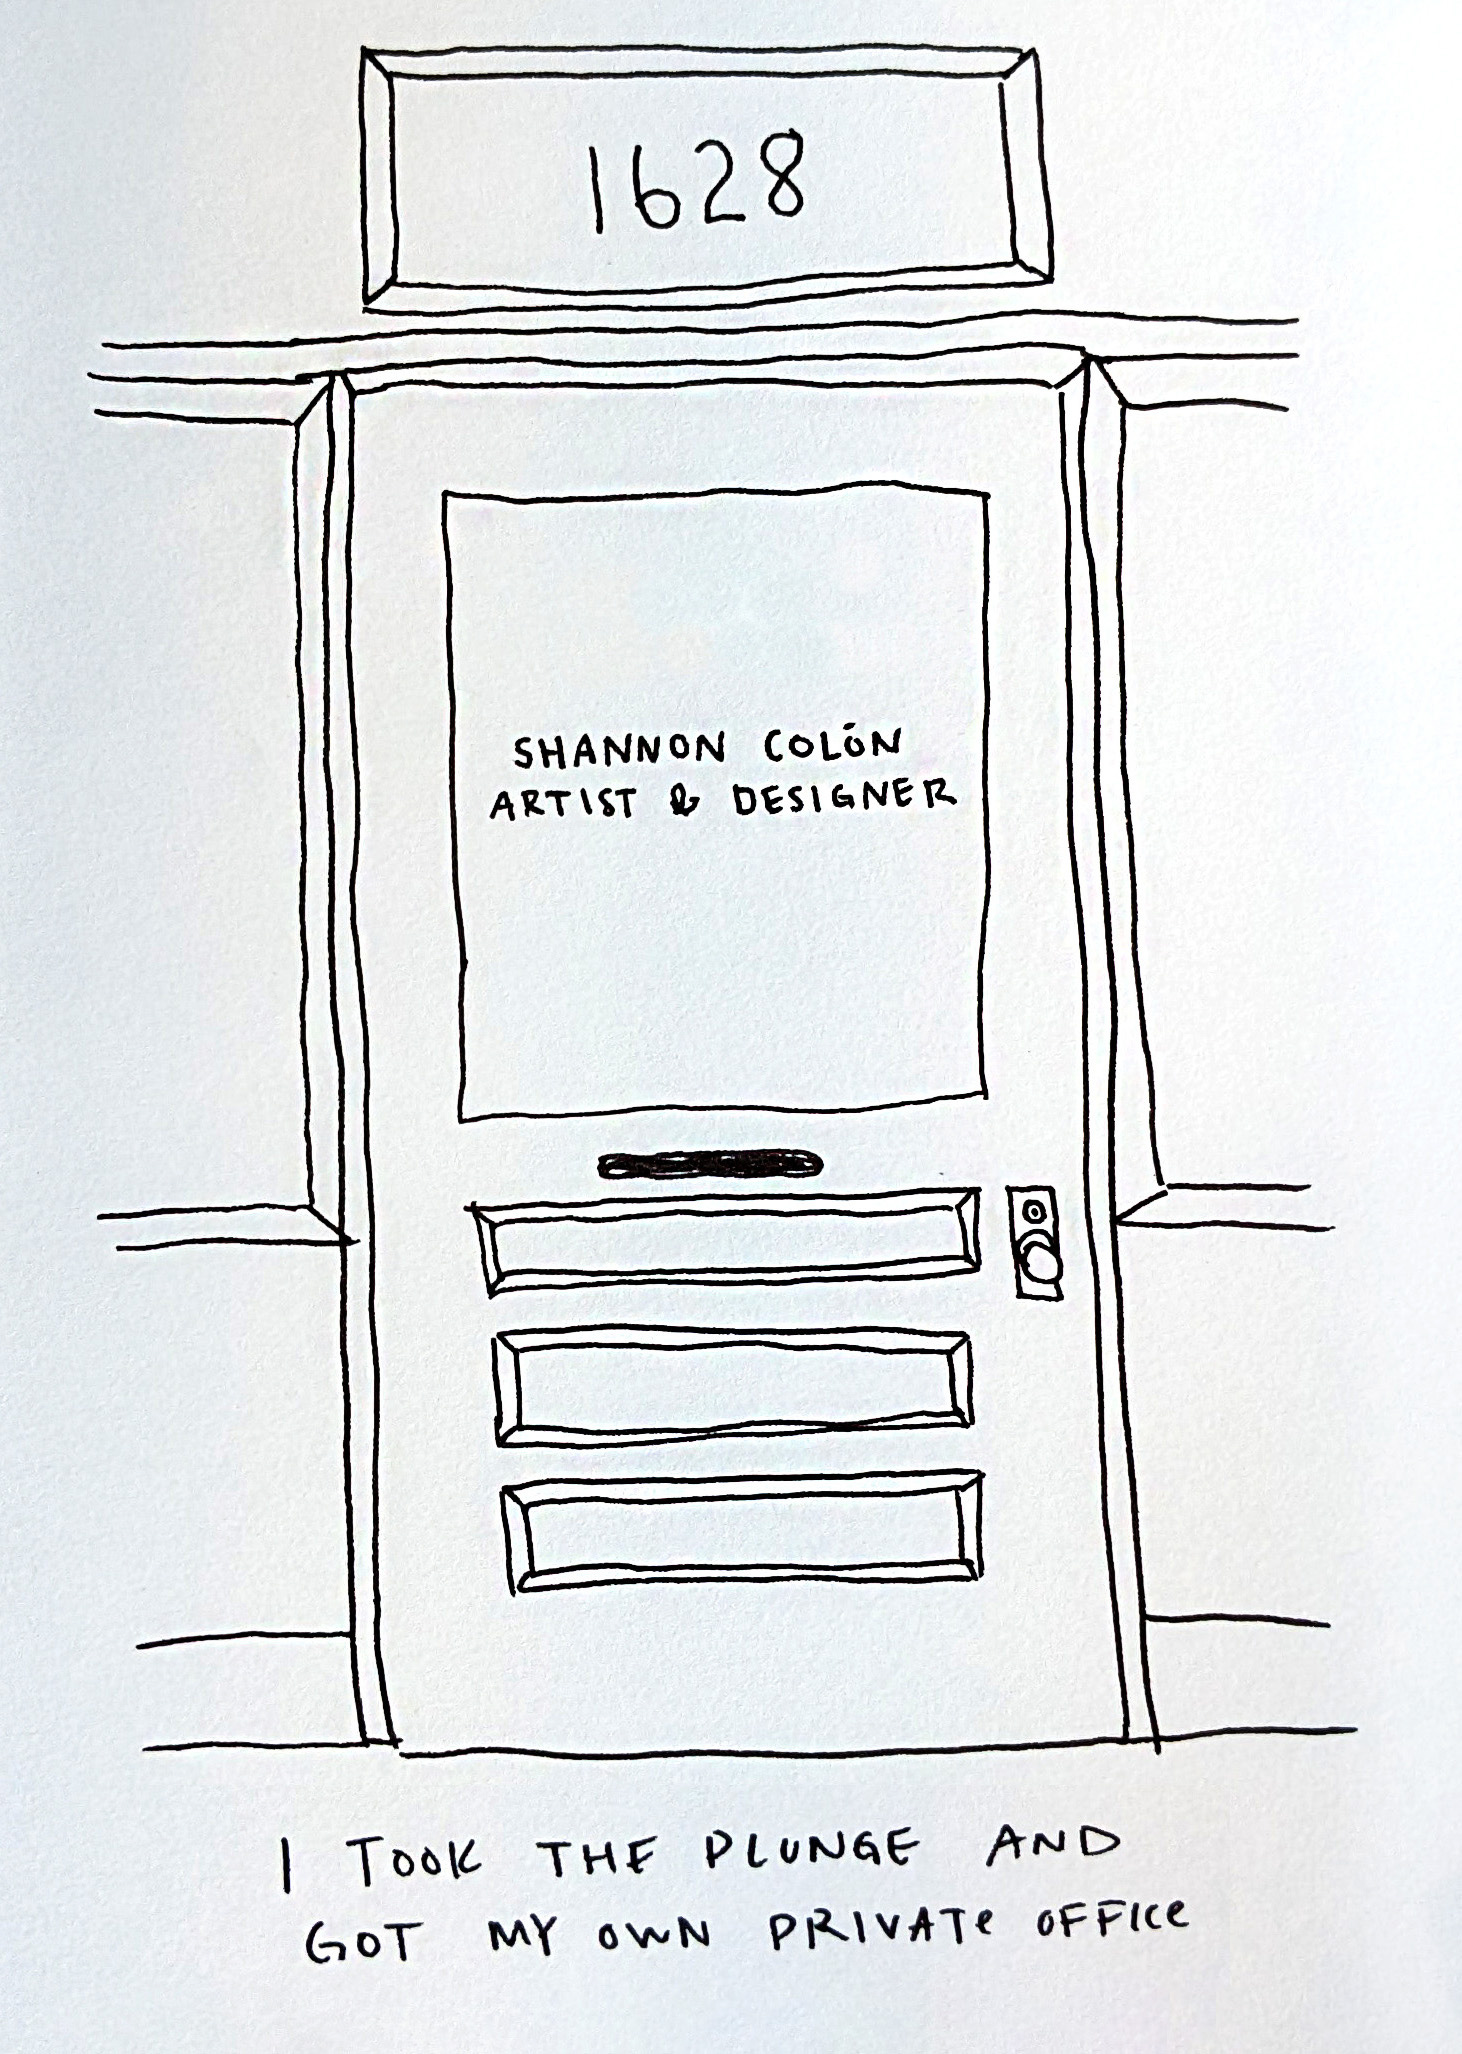 1628
SHANNON COLÓN
ARTIST & DESIGNER
I TOOK THE PLUNGE AND
GOT MY OWN PRIVATE OFFICE